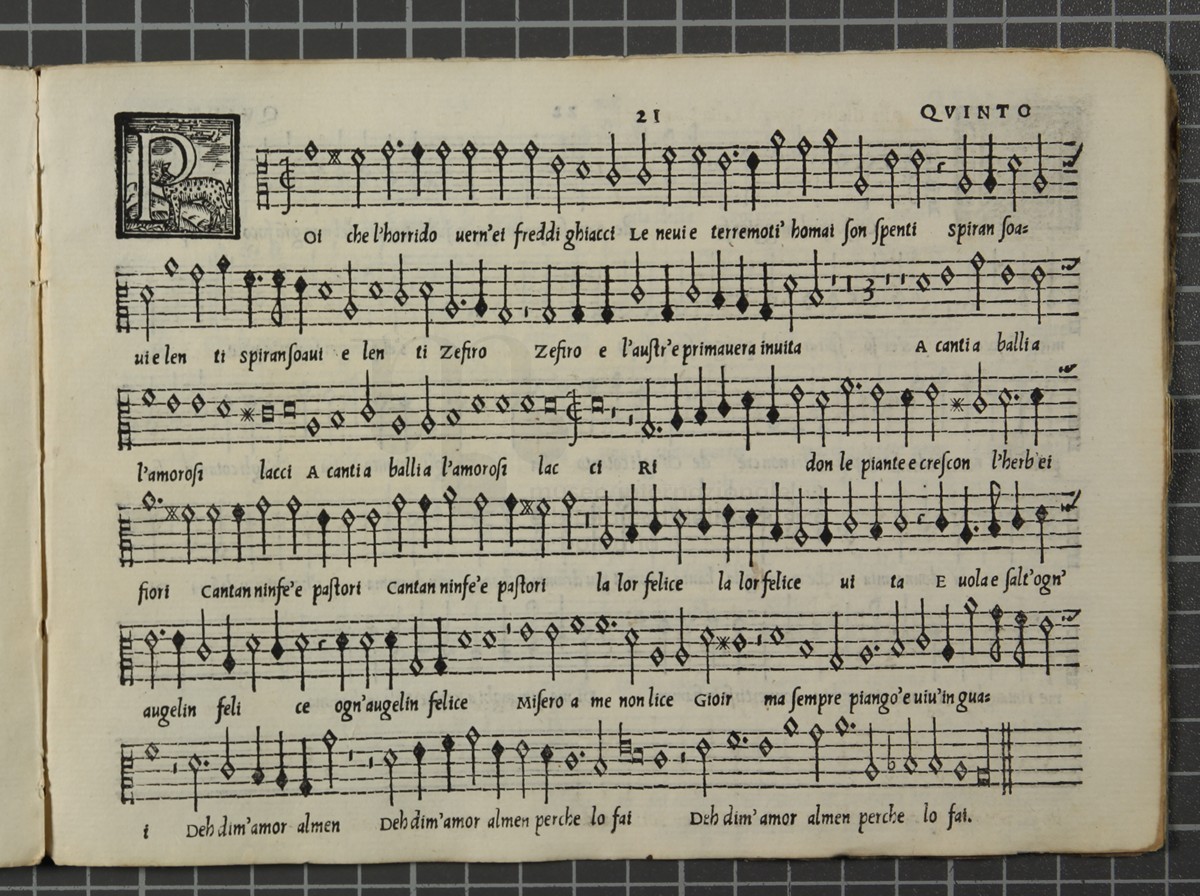 21 QVINTO
POi che l'horrido uern'ei freddi ghiacci Le neui e terremoti' homai ſon ſpenti ſpiran ſoa=
ui e len ti ſpiran ſoaui e len ti Zefiro Zefiro e l'auſtr'e primauera inuita A canti a balli a
l'amoroſi lacci A canti a balli a l'amoroſi lac ci Ri don le piante e creſcon l'herb'ei
fiori Cantan ninfe'e paſtori Cantan ninfe'e paſtori la lor felice la lor felice ui ta E uola e ſalt'ogn'
augelin feli ce ogn'augelin felice Miſero a me non lice Gioir ma ſempre piango'e uiu'in gua=
i Deh dim'amor almen Deh dim'amor almen perche lo fai Deh dim'amor almen perche lo fai.